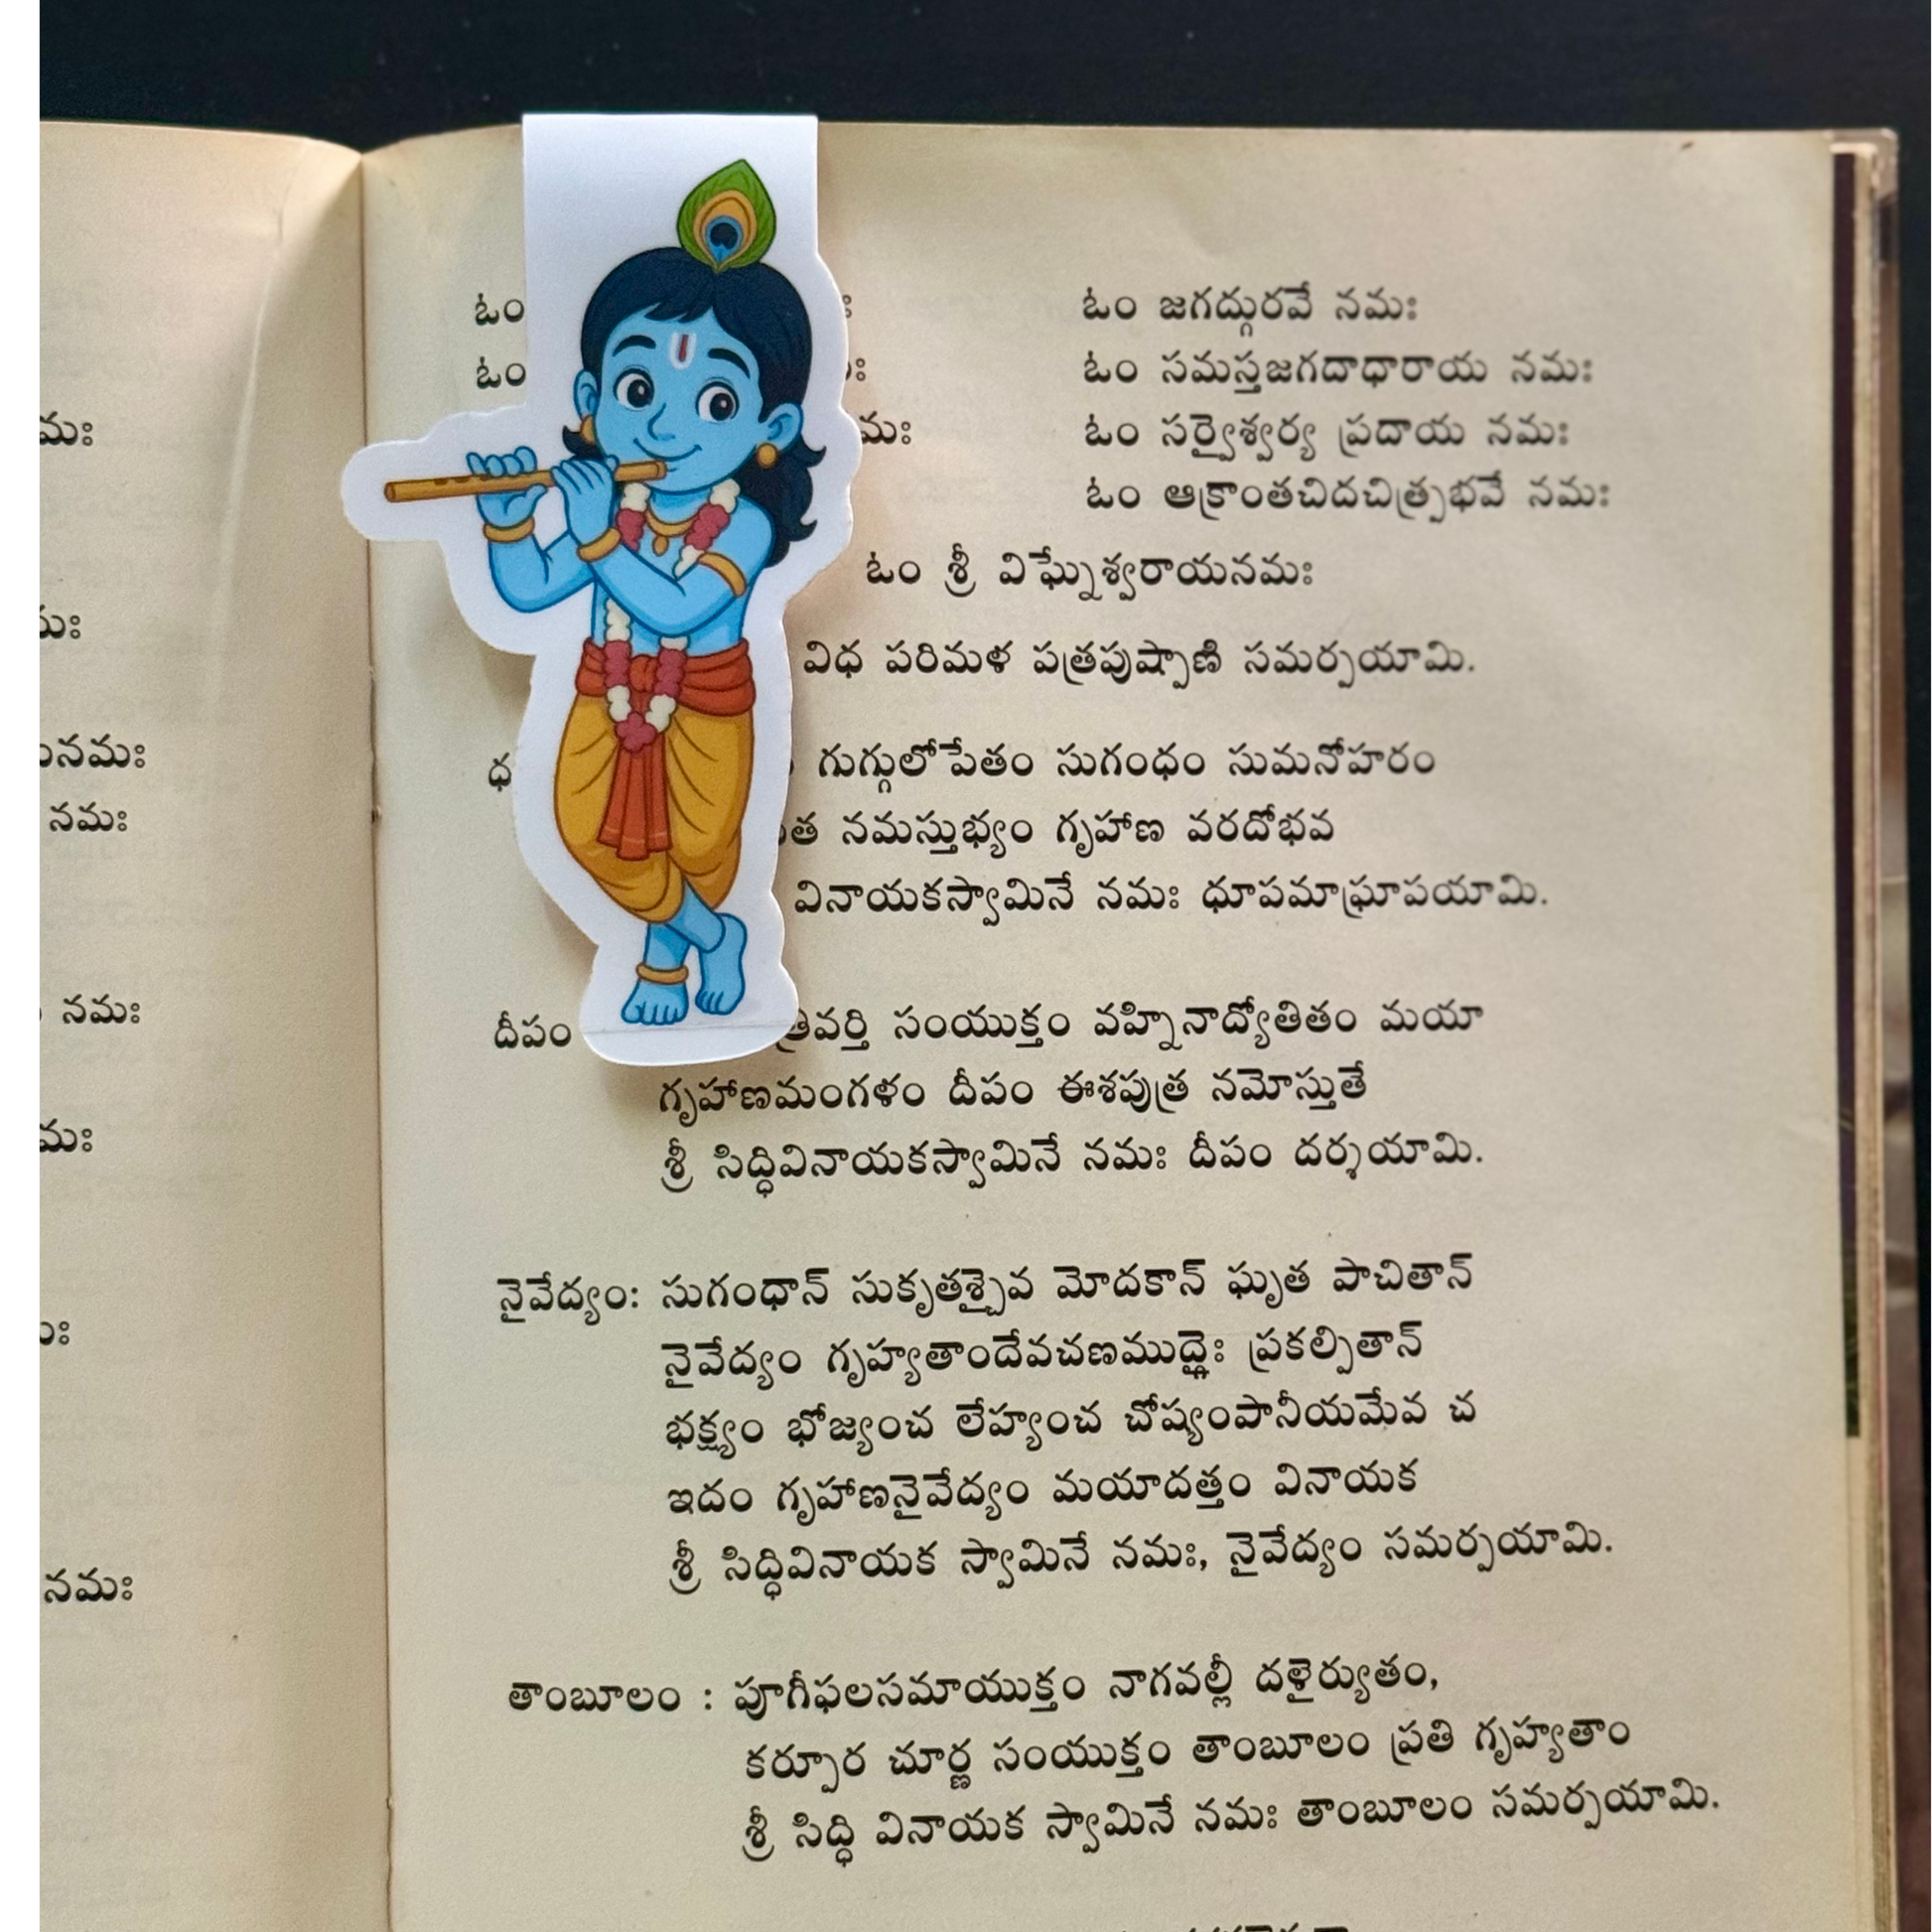 మః
నమః
నమః
నమః
మః
నమః
ఓం
ఓం జగద్గురవే నమః
ఓం
ఓం సమస్తజగదాధారాయ నమః
మః
ఓం సర్వైశ్వర్య ప్రదాయ నమః
ఓం ఆక్రాంతచిదచిత్ప్రభవే నమః
ఓం శ్రీ విఘ్నేశ్వరాయనమః
విధ పరిమళ పత్రపుష్పాణి సమర్పయామి.
గుగ్గులోపేతం సుగంధం సుమనోహరం
నమస్తుభ్యం గృహాణ వరదోభవ
వినాయకస్వామినే నమః ధూపమాఘ్రాపయామి.
దీపం త్రివర్తి సంయుక్తం వహ్నినాద్యోతితం మయా
గృహాణమంగళం దీపం ఈశపుత్ర నమోస్తుతే
శ్రీ సిద్ధివినాయకస్వామినే నమః దీపం దర్శయామి.
నైవేద్యం: సుగంధాన్ సుకృతశ్చైవ మోదకాన్ ఘృత పాచితాన్
నైవేద్యం గృహ్యతాందేవచణముద్గైః ప్రకల్పితాన్
భక్ష్యం భోజ్యంచ లేహ్యంచ చోష్యంపానీయమేవ చ
ఇదం గృహాణనైవేద్యం మయాదత్తం వినాయక
శ్రీ సిద్ధివినాయక స్వామినే నమః, నైవేద్యం సమర్పయామి.
తాంబూలం : పూగీఫలసమాయుక్తం నాగవల్లీ దళైర్యుతం,
కర్పూర చూర్ణ సంయుక్తం తాంబూలం ప్రతి గృహ్యతాం
శ్రీ సిద్ధి వినాయక స్వామినే నమః తాంబూలం సమర్పయామి.